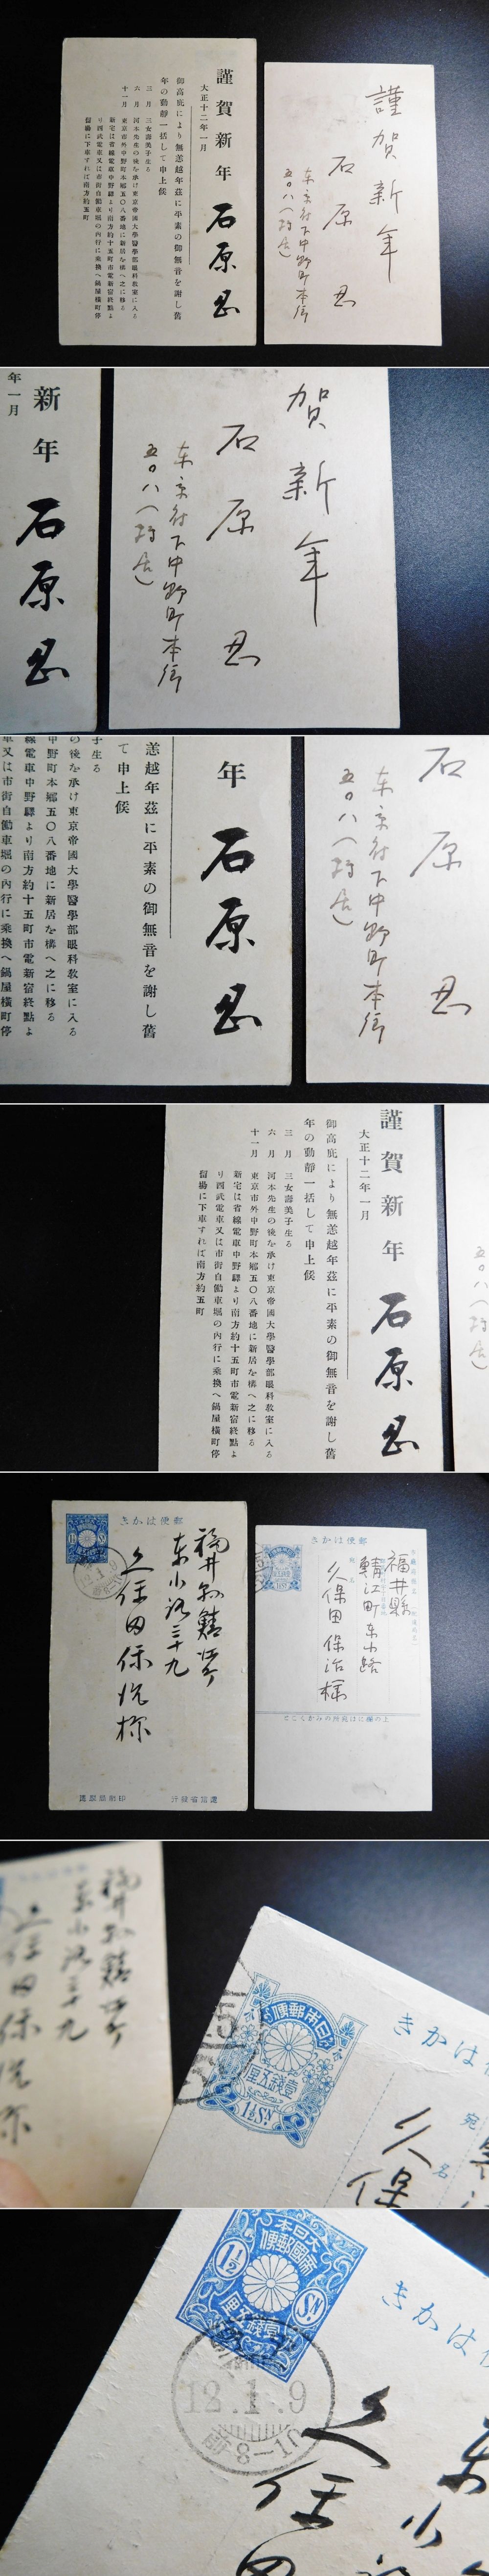 謹賀新年
石原忍
東京府下中野町本郷
五〇八(転居)
謹賀新年 石原忍
大正十二年一月
御高庇により無恙越年茲に平素の御無音を謝し舊
年の動靜一括して申上候
三月 三女壽美子生る
六月 河本先生の後を承け東京帝國大學醫學部眼科教室に入る
十一月 東京市外中野町本郷五〇八番地に新居を構へ之に移る
新宅は省線電車中野驛より南方約十五町市電新宿終點よ
り西武電車又は市街自働車堀の內行に乘換へ鍋屋橫町停
留場に下車すれば南方約五町
賀新年
石原忍
東京府下中野町本郷
五〇八(転居)
新年 石原忍
年一月
石原忍
東京府下中野町本郷
五〇八(転居)
年 石原忍
恙越年茲に平素の御無音を謝し舊
て申上候
子生る
の後を承け東京帝國大學醫學部眼科教室に入る
中野町本郷五〇八番地に新居を構へ之に移る
線電車中野驛より南方約十五町市電新宿終點よ
車又は市街自働車堀の內行に乘換へ鍋屋橫町停
五〇八(転居)
謹賀新年 石原忍
大正十二年一月
御高庇により無恙越年茲に平素の御無音を謝し舊
年の動靜一括して申上候
三月 三女壽美子生る
六月 河本先生の後を承け東京帝國大學醫學部眼科教室に入る
十一月 東京市外中野町本郷五〇八番地に新居を構へ之に移る
新宅は省線電車中野驛より南方約十五町市電新宿終點よ
り西武電車又は市街自働車堀の內行に乘換へ鍋屋橫町停
留場に下車すれば南方約五町
きかは便郵
福井縣
鯖江町東小路
久保田保治樣
せこくかみの所宛はに欄の上
きかは便郵
1½ SN
12.1.9
福井縣鯖江町
東小路三十九
久保田保治樣
造製局刷印
行發省信遞
大日本帝國郵便
壹錢五厘
1½ SN
きかは便
宛名
久保
大日本帝國郵便
1½ SN
壹錢五厘
きかは便
12.1.9
前8-10
東小路
久保田